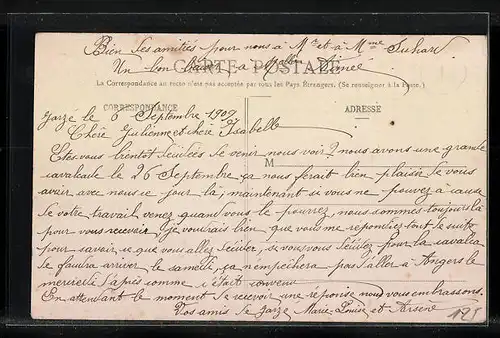 Bien des amitiés pour nous à Mr et à Mme Suhard
Un bon baiser a Mlle Aimée
CARTE POSTALE
La Correspondance au recto n'est pas acceptée par tous les Pays Étrangers. (Se renseigner à la Poste.)
CORRESPONDANCE
ADRESSE
Jarzé le 6 Septembre 1909
Chère Julienne et chère Isabelle
Etes vous bientot décidées de venir nous voir? nous avons une grande
M
cavalcade le 26 Septembre ça nous ferait bien plaisir de vous
avoir avec nous ce jour là; maintenant si vous ne pouvez à cause
de votre travail venez quand vous le pourrez nous sommes toujours là
pour vous recevoir Je voudrais bien que vous me répondiez tout de suite
pour savoir ce que vous allez décider, si vous vous décidez pour la cavalca
de faudra arriver le samedi, ça n'empêchera pas d'aller à Angers le
mercredi d'après comme c'était convenu
En attendant le moment de recevoir une réponse nous vous embrassons.
Vos amis de Jarzé Marie-Louise et Arsène
125